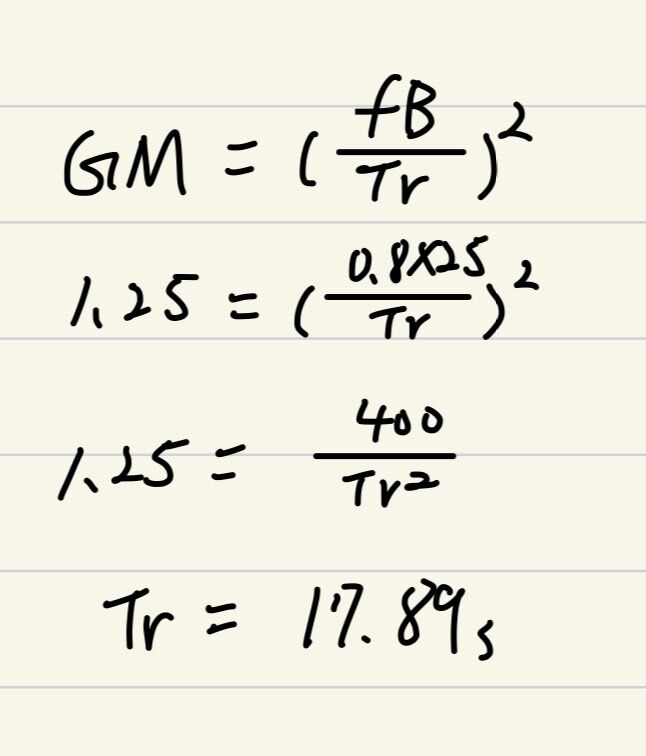 GM = (fB/Tr)²
1.25 = (0.8×25/Tr)²
1.25 = 400/Tr²
Tr = 17.89s